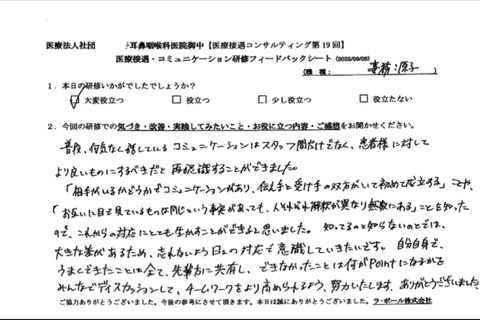 医療法人社団 耳鼻咽喉科医院御中【医療接遇コンサルティング第19回】
医療接遇・コミュニケーション研修フィードバックシート(2025/09/09)
(職種: 事務:原子)
1.本日の研修いかがでしたでしょうか?
☑大変役立つ □役立つ □少し役立つ □役立たない
2.今回の研修での気づき・改善・実践してみたいこと・お役に立つ内容・ご感想をお聞かせください。
普段、何気なく話しているコミュニケーションはスタッフ間だけでなく、患者様に対して
より良いものにするべきだと再認識することができました。
「相手がいるかどうかでコミュニケーションがあり、伝え手と受け手の双方がいて初めて成立する」ことや、
「お互いに目で見ているものは同じという事実があっても、人それぞれ解釈が異なり無数にある」ことを知った
ので、これからの対応にとても生かすことができると思いました。知ってるのと知らないのとでは、
大きな差があるため、忘れないよう日々の対応で意識していきたいです。自分自身で、
うまくできたことは全て、先輩方に共有し、できなかったことは何がPointになるかを
みんなでディスカッションして、チームワークをより高められるよう、努力いたします。ありがとうございました。
ご協力ありがとうございました。今後の参考にさせて頂きます。本日は誠にありがとうございました。ラ・ポール株式会社